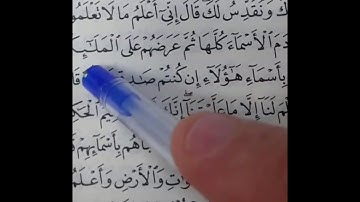 ك وَنُقَدِّسُ لَكَ قَالَ إِنِّىٓ أَعْلَمُ مَا لَا تَعْلَمُو
دَمَ ٱلْأَسْمَآءَ كُلَّهَا ثُمَّ عَرَضَهُمْ عَلَى ٱلْمَلَٰٓئِكَ
بِأَسْمَآءِ هَٰٓؤُلَآءِ إِن كُنتُمْ صَٰدِ
لَنَآ إِلَّا مَا عَ
هُم بِأَسْمَآئِهِمْ
وَٰتِ وَٱلْأَرْضِ وَأَعْلَمُ